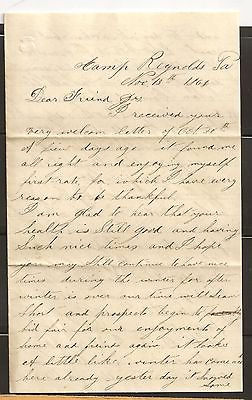 Camp Reynolds Pa
Nov. 18th 1864
Dear Friend
I received your
very welcom letter of Oct 30th
a few days ago it found me
all right and enjoying myself
first rate, for which I have every
reason to be thankful
I am glad to hear that your
health is Still good and having
Such nice times and I hope
you may Still continue to have nice
times during the winter for after
winter is over our time will Seem
Short and prospects begin to
bid fair for our enjoyments of
home and freinds again it looks
a little like winter has come
here already yesterday it Snowed
Some